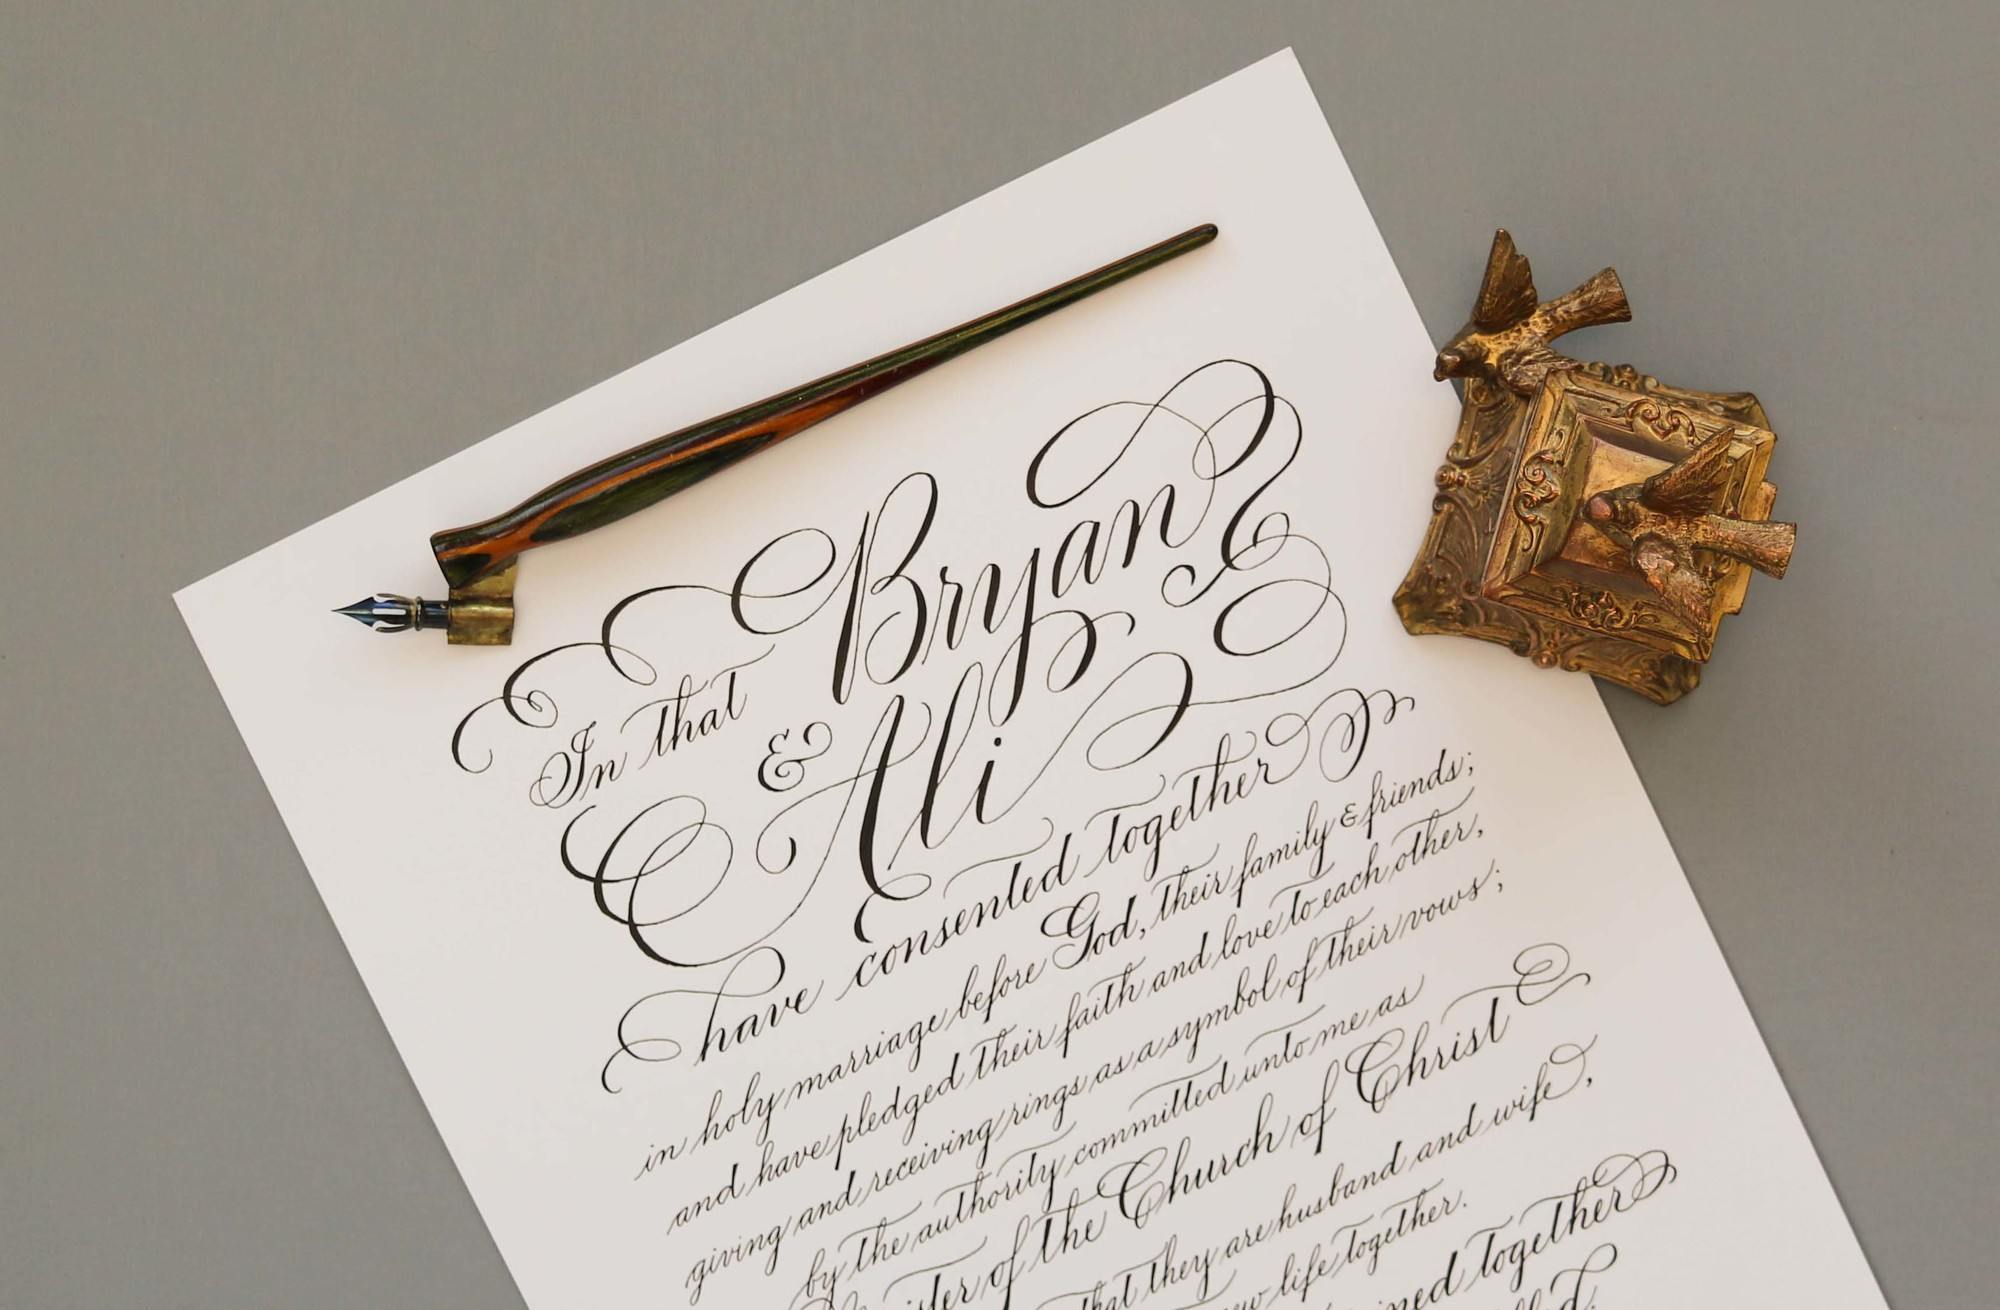 In that Bryan
& Ali
have consented together
in holy marriage before God, their family & friends;
and have pledged their faith and love to each other,
giving and receiving rings as a symbol of their vows;
by the authority committed unto me as
of the Church of Christ
that they are husband and wife,
life together.
together